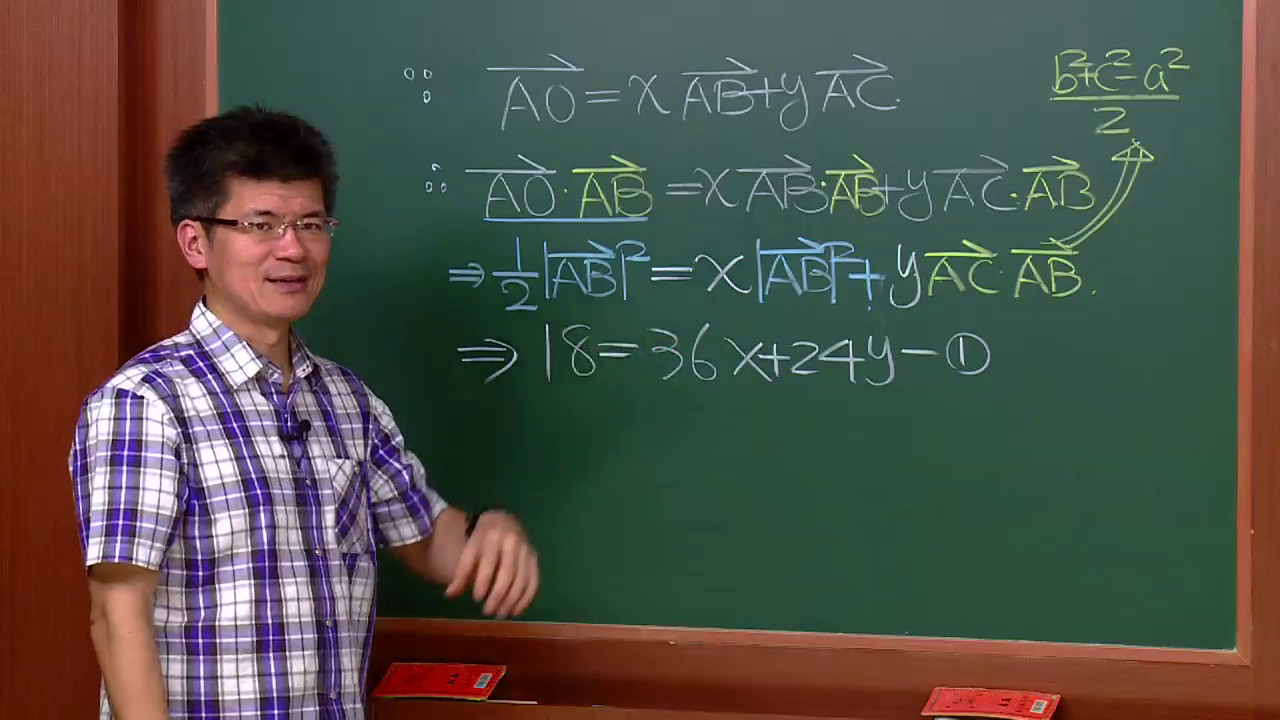 ∵ \overrightarrow{AO}=x\overrightarrow{AB}+y\overrightarrow{AC}.
\frac{b^2+c^2-a^2}{2}
∴ \overrightarrow{AO}·\overrightarrow{AB}=x\overrightarrow{AB}·\overrightarrow{AB}+y\overrightarrow{AC}·\overrightarrow{AB}
⇒\frac{1}{2}|\overrightarrow{AB}|^2=x|\overrightarrow{AB}|^2+y\overrightarrow{AC}·\overrightarrow{AB}.
⇒18=36x+24y-①